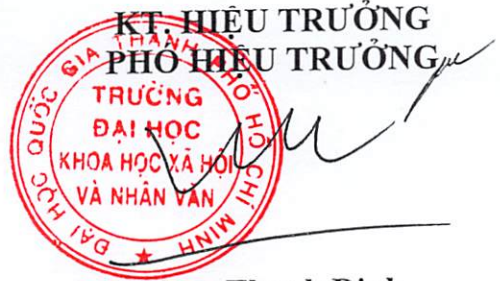 KT. HIỆU TRƯỞNG
PHÓ HIỆU TRƯỞNG
ĐẠI HỌC QUỐC GIA THÀNH PHỐ HỒ CHÍ MINH
TRƯỜNG
ĐẠI HỌC
KHOA HỌC XÃ HỘI
VÀ NHÂN VĂN